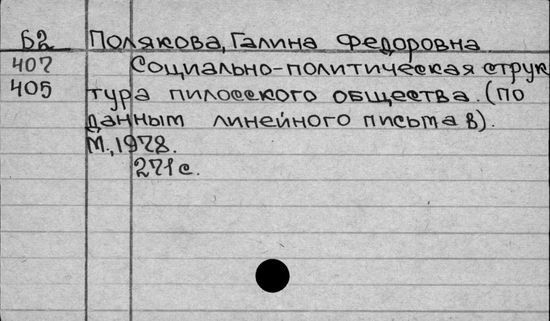 Б2 Полякова, Галина Федоровна
407 Социально-политическая струк
405 тура пилосского общества. (по
данным линейного письма В).
М., 1978.
271с.